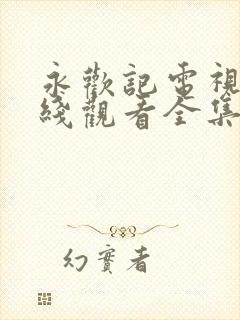 永歡記電視
綫觀看全集
幻實者